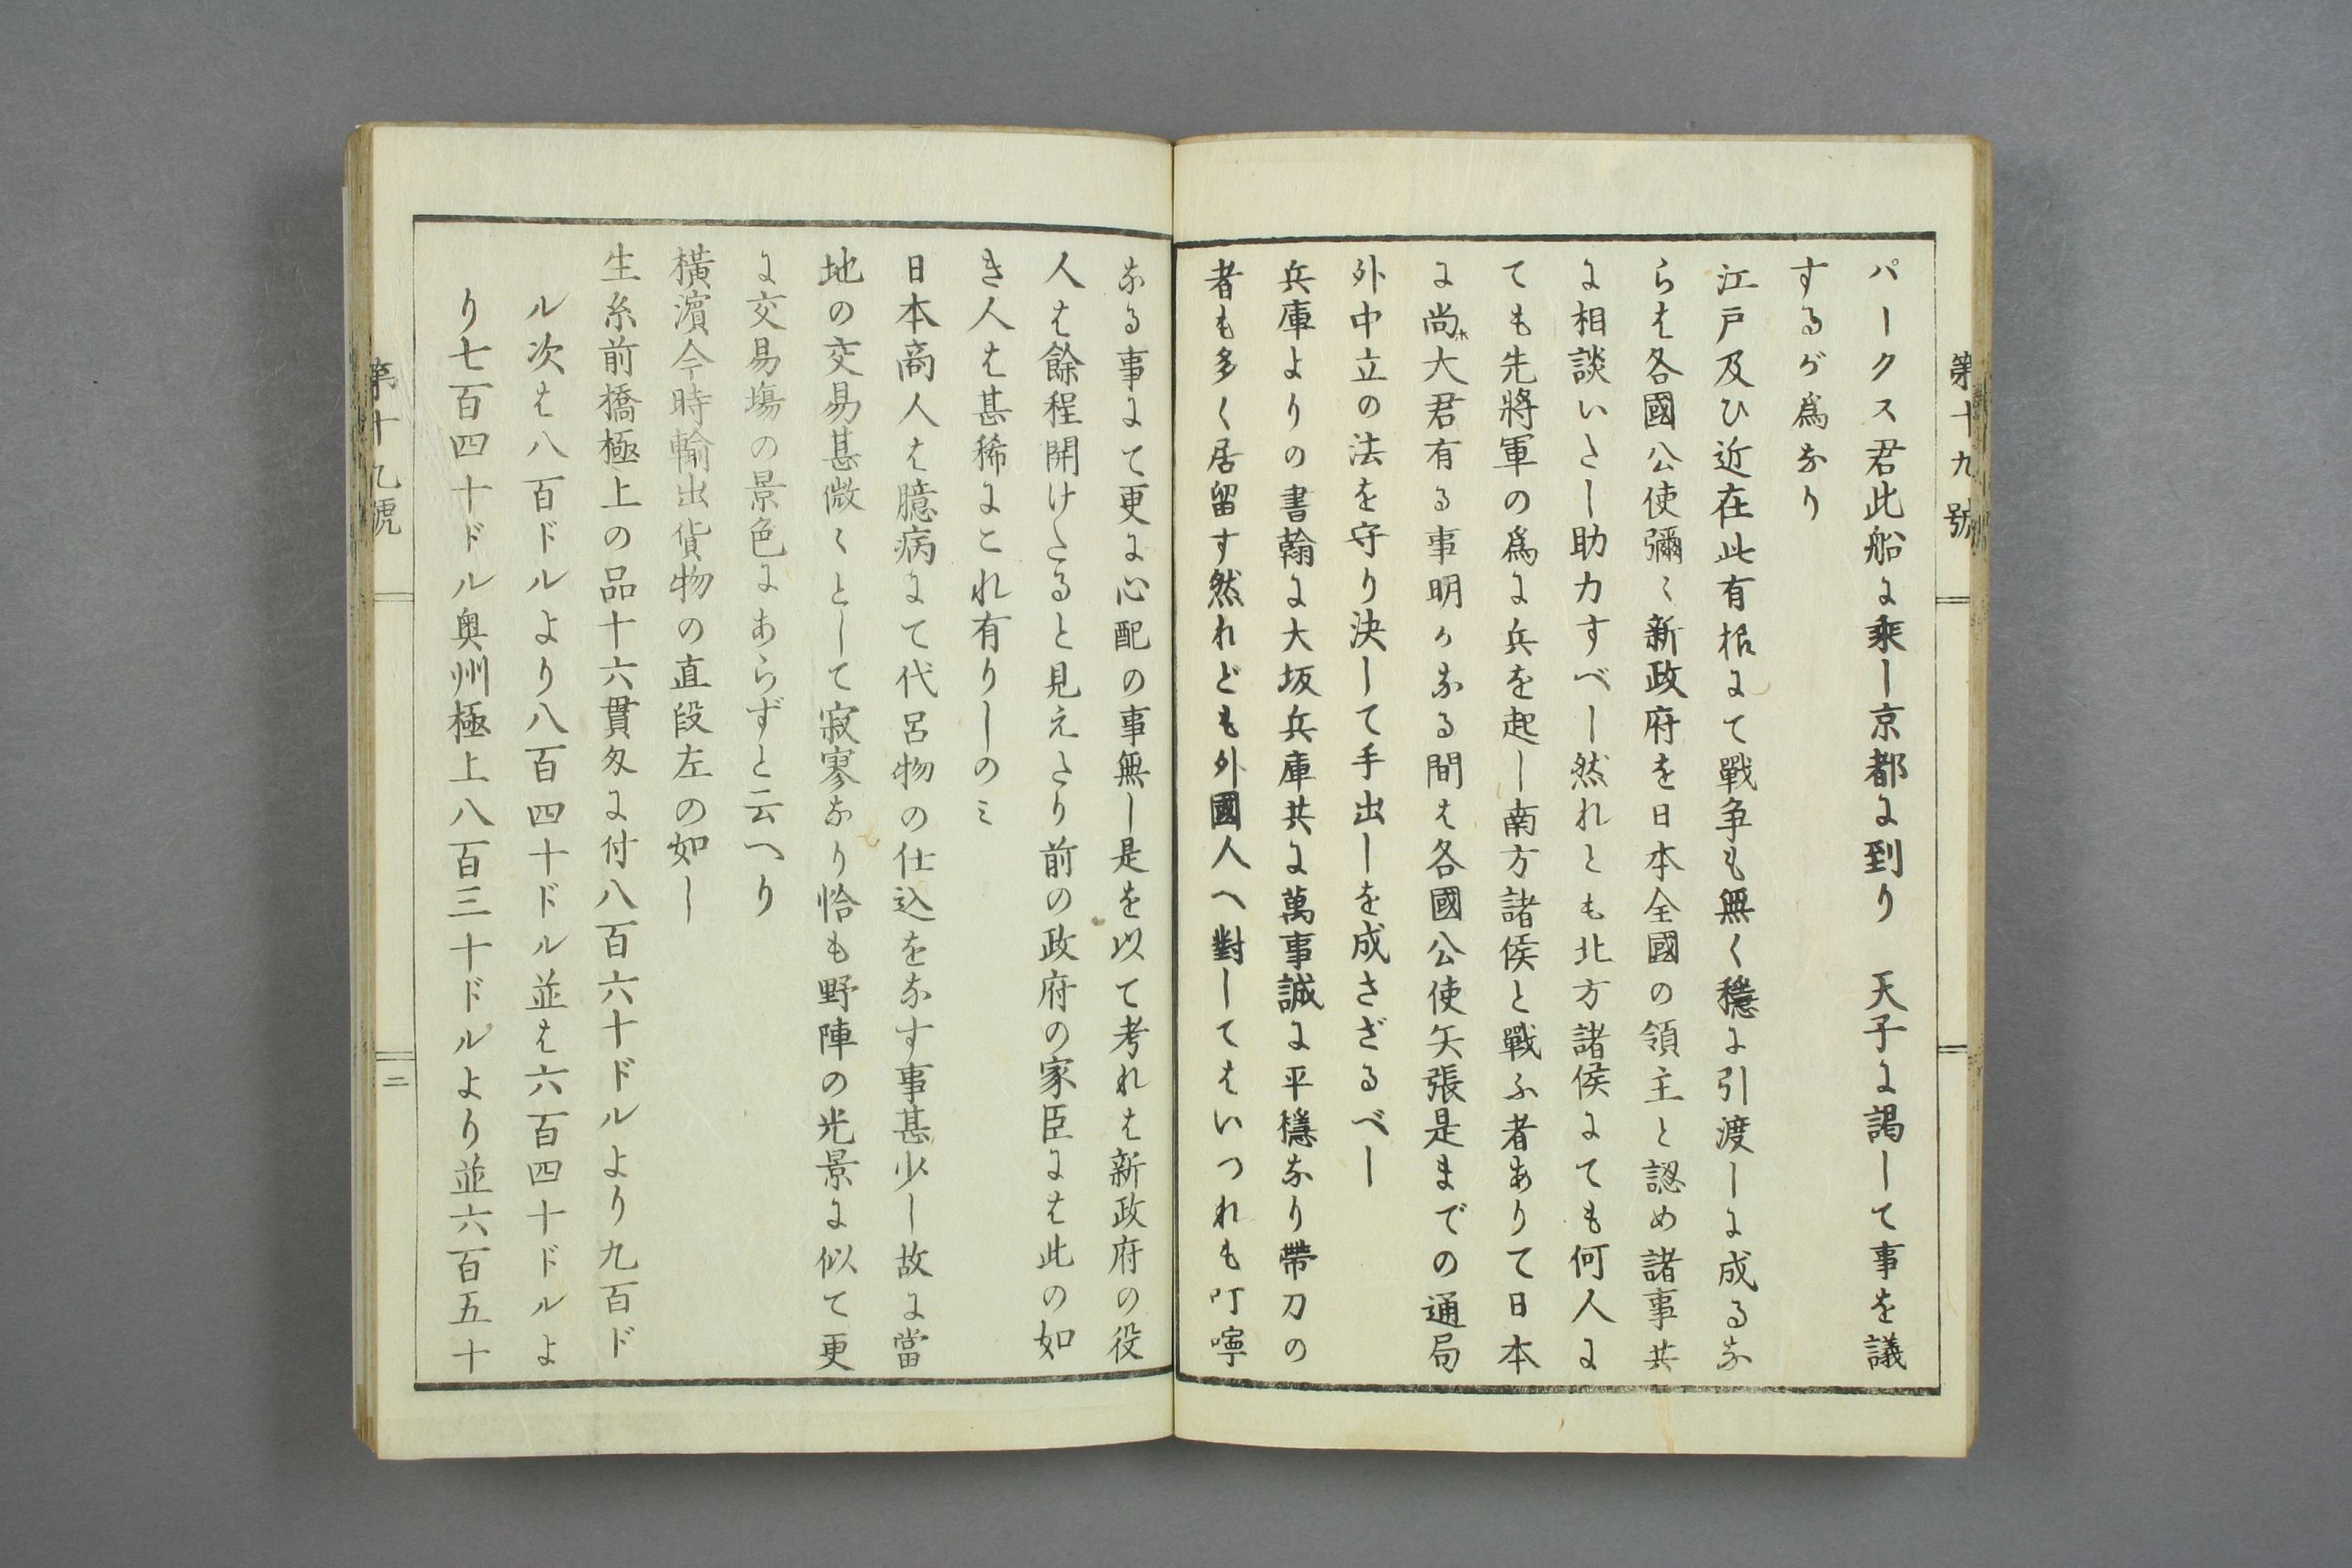 第十九號
パークス君此船に乘し京都に到り　天子に謁して事を議
するが爲なり
江戸及ひ近在此有樣にて戰争も無く穩に引渡しに成るな
らは各國公使彌〻新政府を日本全國の領主と認め諸事共
に相談いたし助力すべし然れとも北方諸侯にても何人に
ても先將軍の爲に兵を起し南方諸侯と戰ふ者ありて日本
に尚ホ大君有る事明カなる間は各國公使矢張是までの通局
外中立の法を守り決して手出しを成さざるべし
兵庫よりの書翰に大坂兵庫共に萬事誠に平穩なり帶刀の
者も多く居留す然れども外國人へ對してはいつれも叮嚀
なる事にて更に心配の事無し是を以て考れは新政府の役
人は餘程開けたると見えたり前の政府の家臣には此の如
き人は甚稀にこれ有りしのミ
日本商人は臆病にて代呂物の仕込をなす事甚少し故に當
地の交易甚微〻として寂寥なり恰も野陣の光景に似て更
に交易塲の景色にあらずと云へり
横濵今時輸出貨物の直段左の如し
生糸前橋極上の品十六貫匁に付八百六十ドルより九百ド
ル次は八百ドルより八百四十ドル並は六百四十ドルよ
り七百四十ドル奥州極上八百三十ドルより並六百五十
第十九號
二